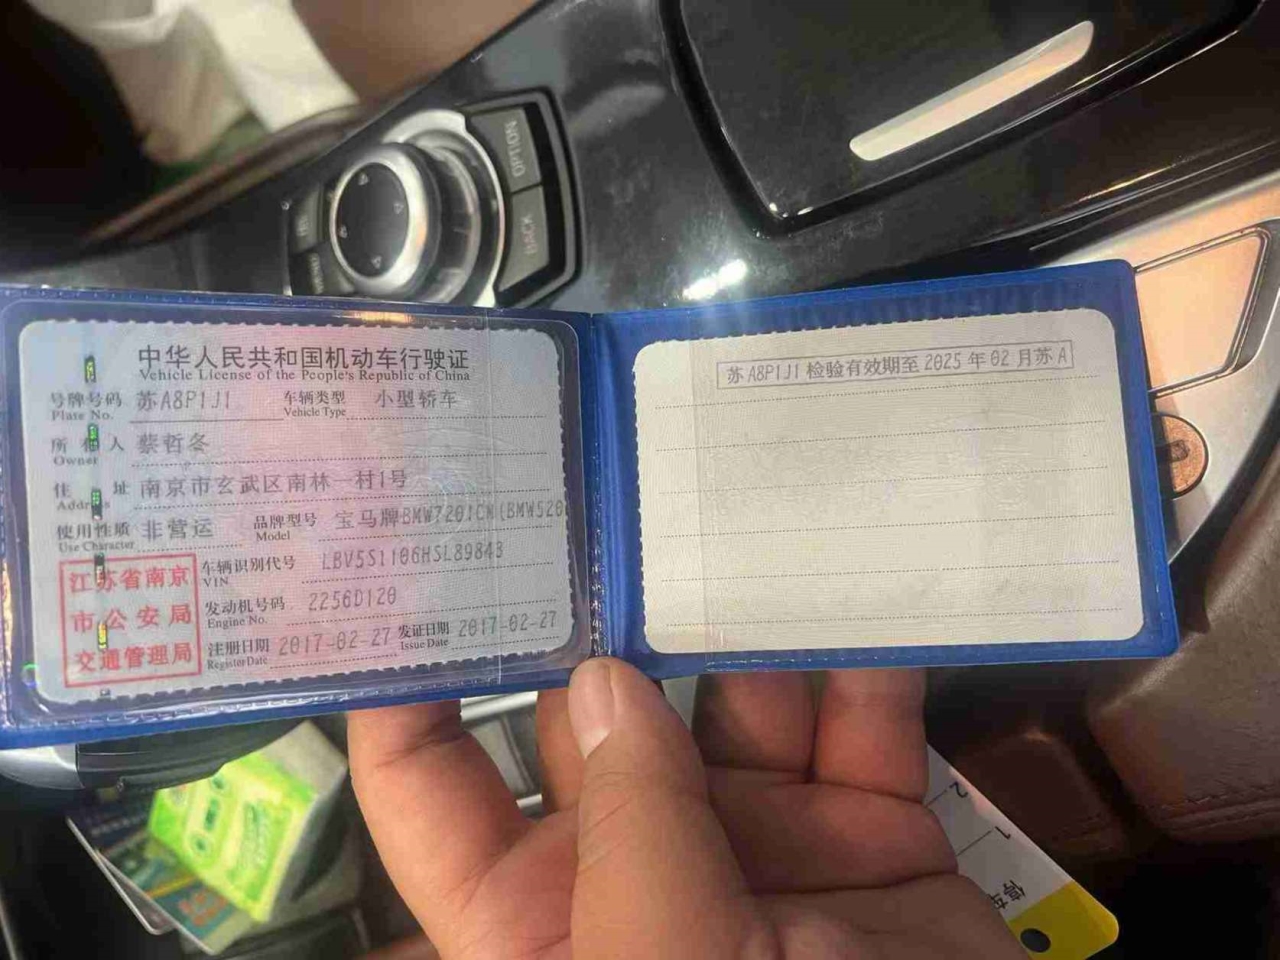 OPTION
BACK
中华人民共和国机动车行驶证
Vehicle License of the People's Republic of China
号牌号码 苏A8P1J1 车辆类型 小型轿车
Plate No. Vehicle Type
所有人 蔡哲冬
Owner
住 址 南京市玄武区南林一村1号
Address
使用性质 非营运 品牌型号 宝马牌BMW7201CM(BMW520
Use Character Model
江苏省南京
市公安局
交通管理局
车辆识别代号 LBV5S1106HSL89843
VIN
发动机号码 2256D120
Engine No.
注册日期 2017-02-27 发证日期 2017-02-27
Register Date Issue Date
苏A8P1J1 检验有效期至 2025 年 02 月苏 A
2
1
停车